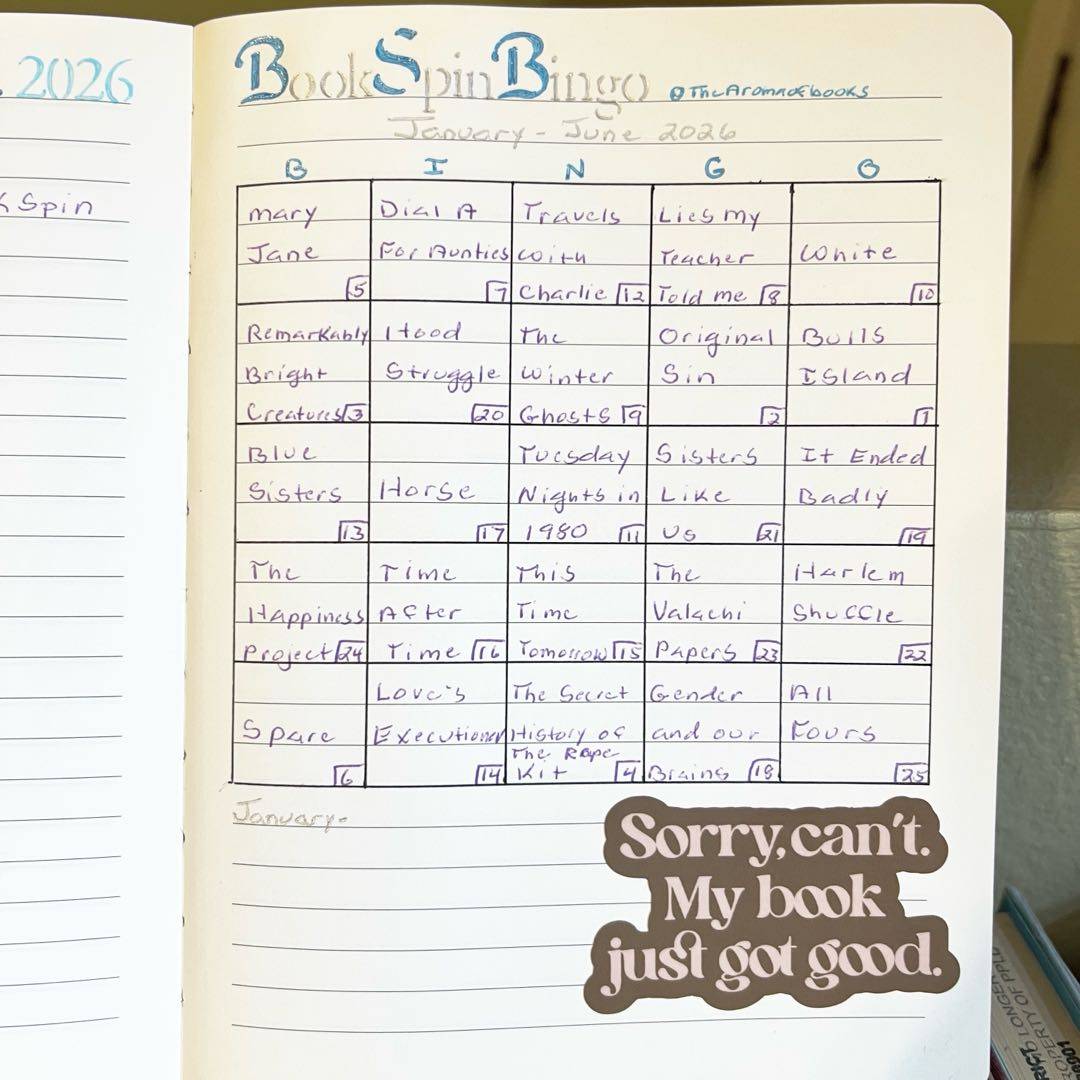 . 2026
Spin
BookSpinBingo @TheAromaofbooks
January - June 2026
B I N G O
Mary Jane 5
Dial A For Aunties 7
Travels with Charlie 12
Lies my Teacher Told me 8
White 10
Remarkably Bright Creatures 3
Hood Struggle 20
The Winter Ghosts 9
Original Sin 2
Bulls Island 1
Blue Sisters 13
Horse 17
Tuesday Nights in 1980 11
Sisters Like Us 21
It Ended Badly 19
The Happiness Project 24
Time After Time 16
This Time Tomorrow 15
The Valachi Papers 23
Harlem Shuffle 22
Spare 6
Love's Executioner 14
The Secret History of The Rape Kit 4
Gender and our Brains 18
All Fours 25
January-
Sorry, can't.
My book
just got good.